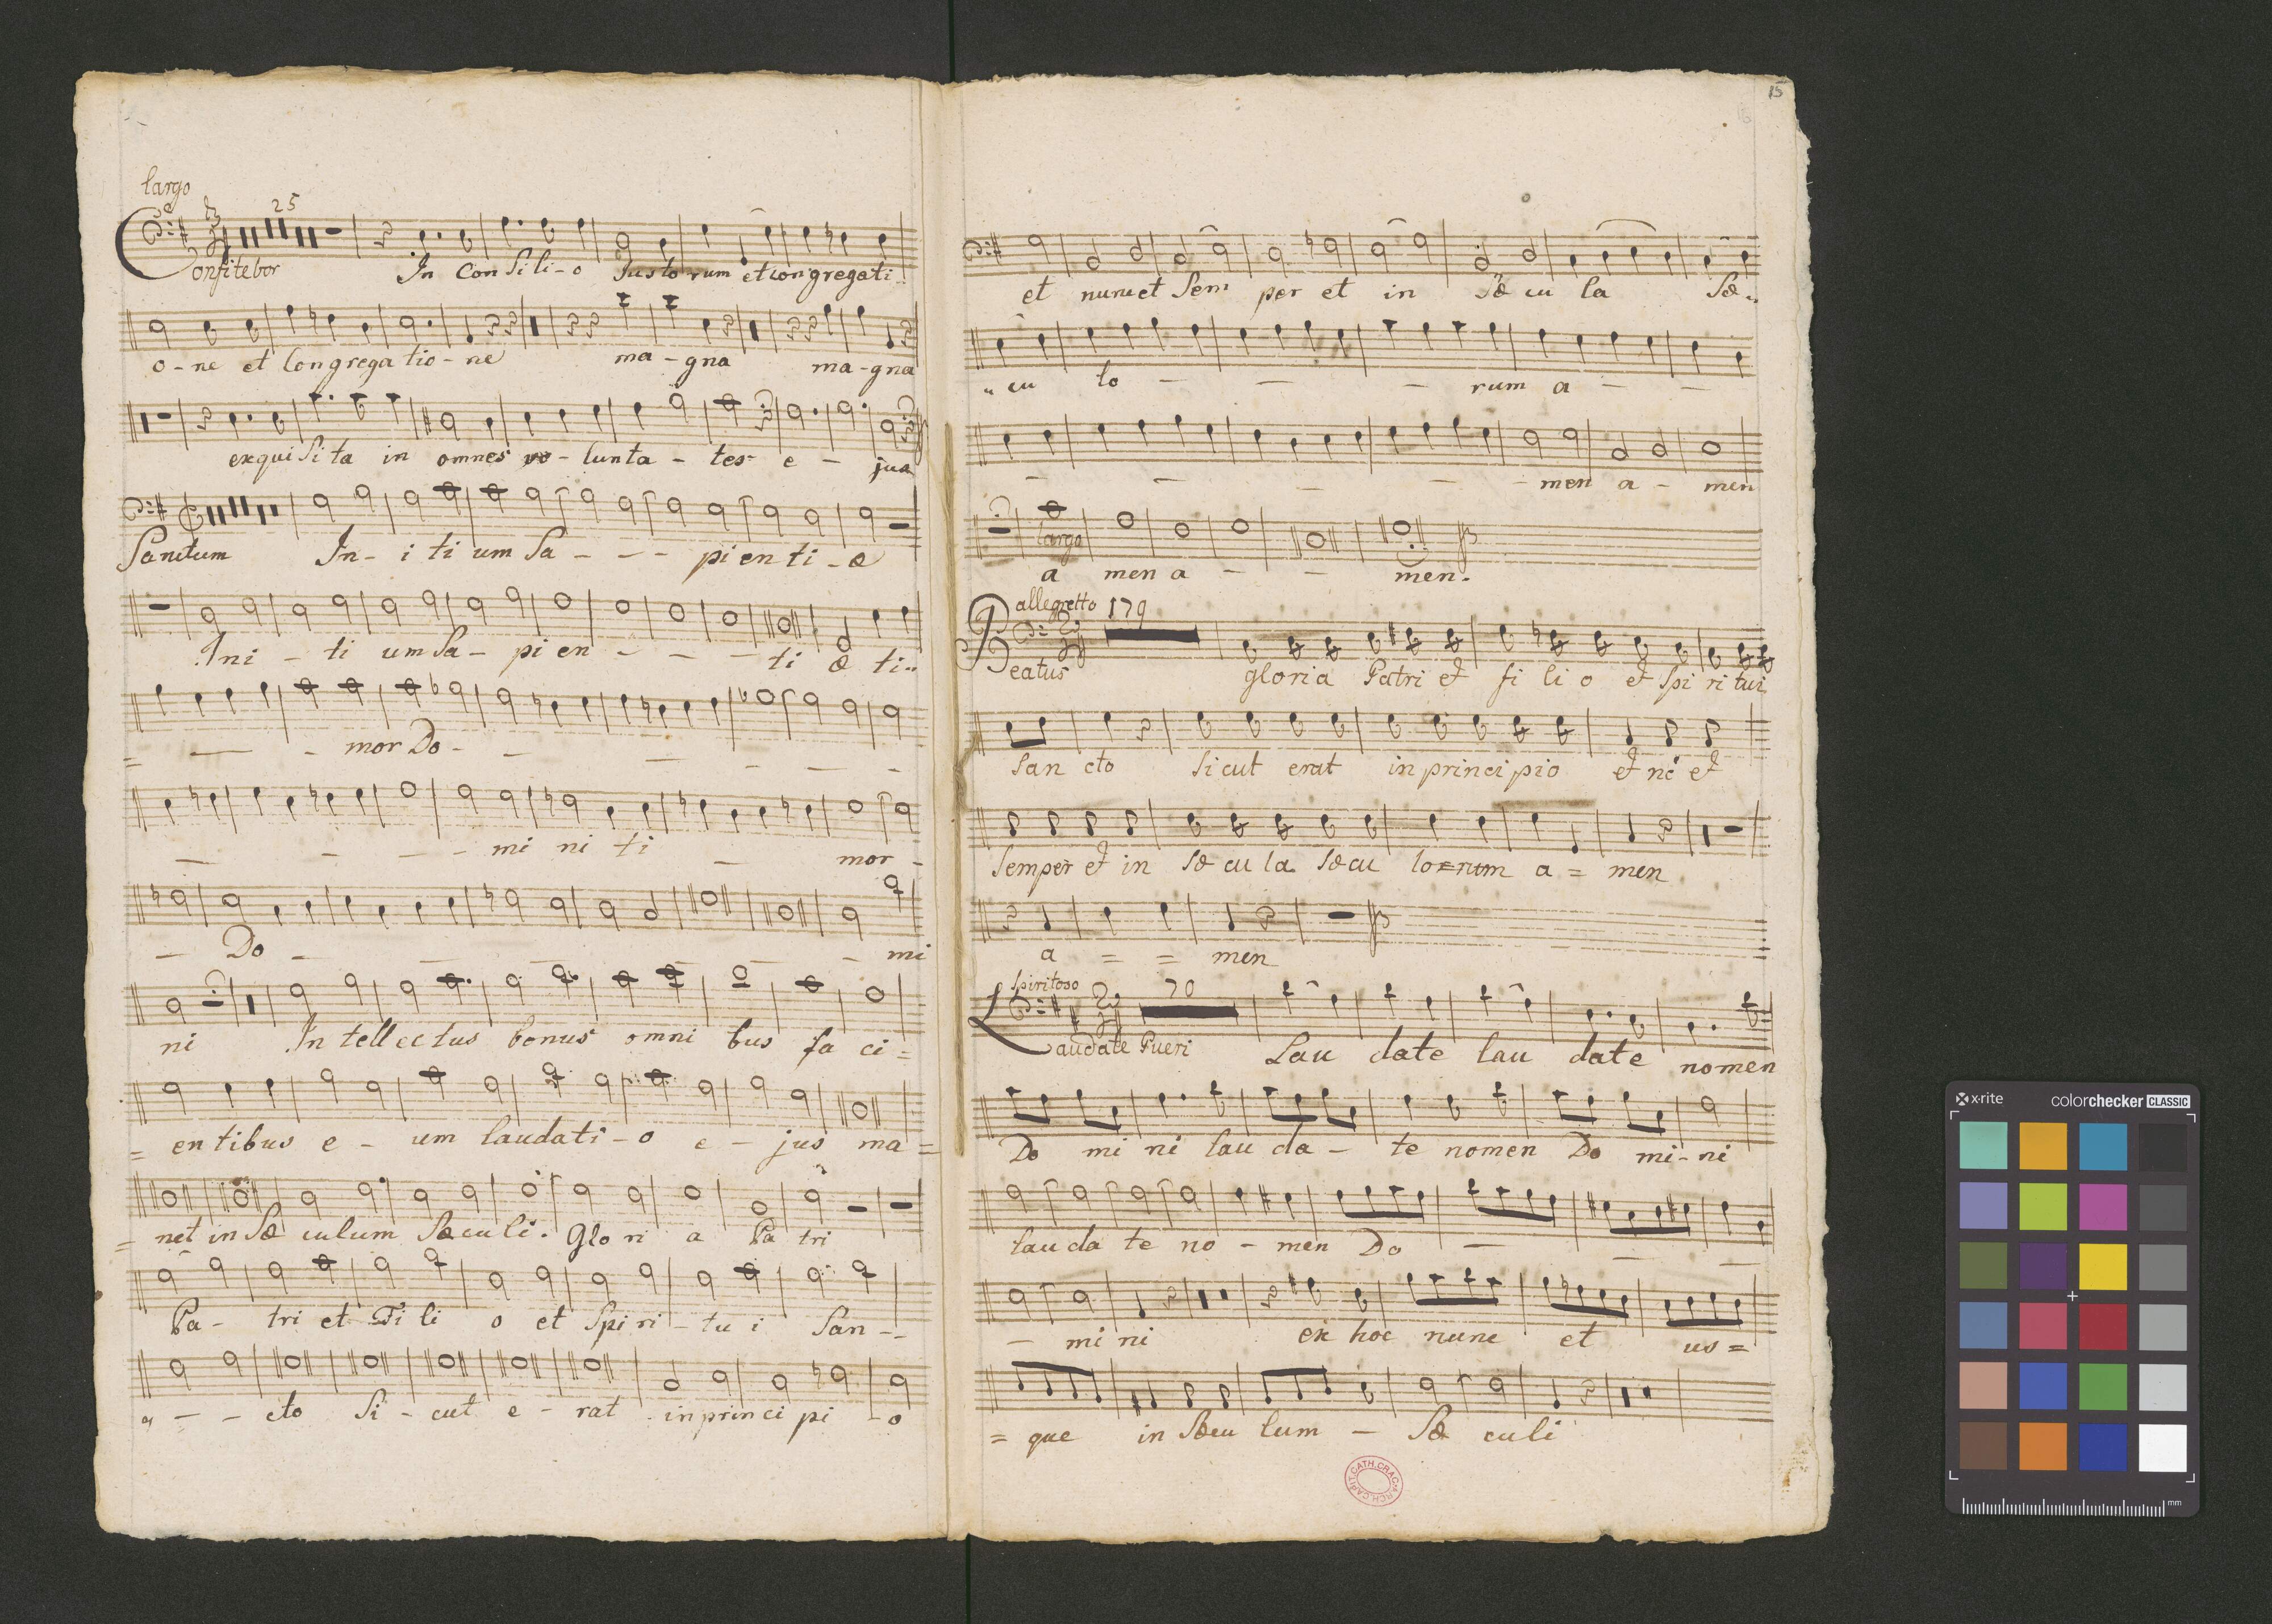 largo
25
Confitebor In Con Si li - o Justo rum et congregati -
o - ne et Congrega tio - ne ma - gna ma - gna
exqui Si ta in omnes vo - lunta - tes e - jua
Sanctum In - i ti um Sa - - - pi en ti - æ
Ini - ti um Sa - pi en - - - ti æ ti -
- - - mor Do - - - - - -
- - - - mi ni ti - mor -
- Do - - - - mi
ni In tell ec tus bonus omni bus fa ci =
= en tibus e - um laudati - o e - jus ma =
= net in Sæ culum Sæculi. Glo ri a Pa tri
Pa - tri et Fi li o et Spi ri - tu i San -
- - cto Si - cut e - rat in princi pi - o
15
et nunc et Sem per et in Sæ cu la Sæ -
cu lo - - - rum a - -
- - - - - men a - men
largo
a men a - - men.
allegretto 179
Beatus gloria Patri et fi li o et Spi ri tui
San cto Si cut erat in principio et nc et
Semper et in Sæ cu la Sæcu lo=rum a = men
a = = men
Spiritoso 70
Laudate Pueri Lau date lau date nomen
Do mi ni lau da - te nomen Do mi - ni
lau da te no - men Do - - -
- mi ni ex hoc nunc et us =
= que in Sæcu lum - Sæ culi
ARCH.CAPIT.CATH.CRAC.
x-rite colorchecker CLASSIC
mm